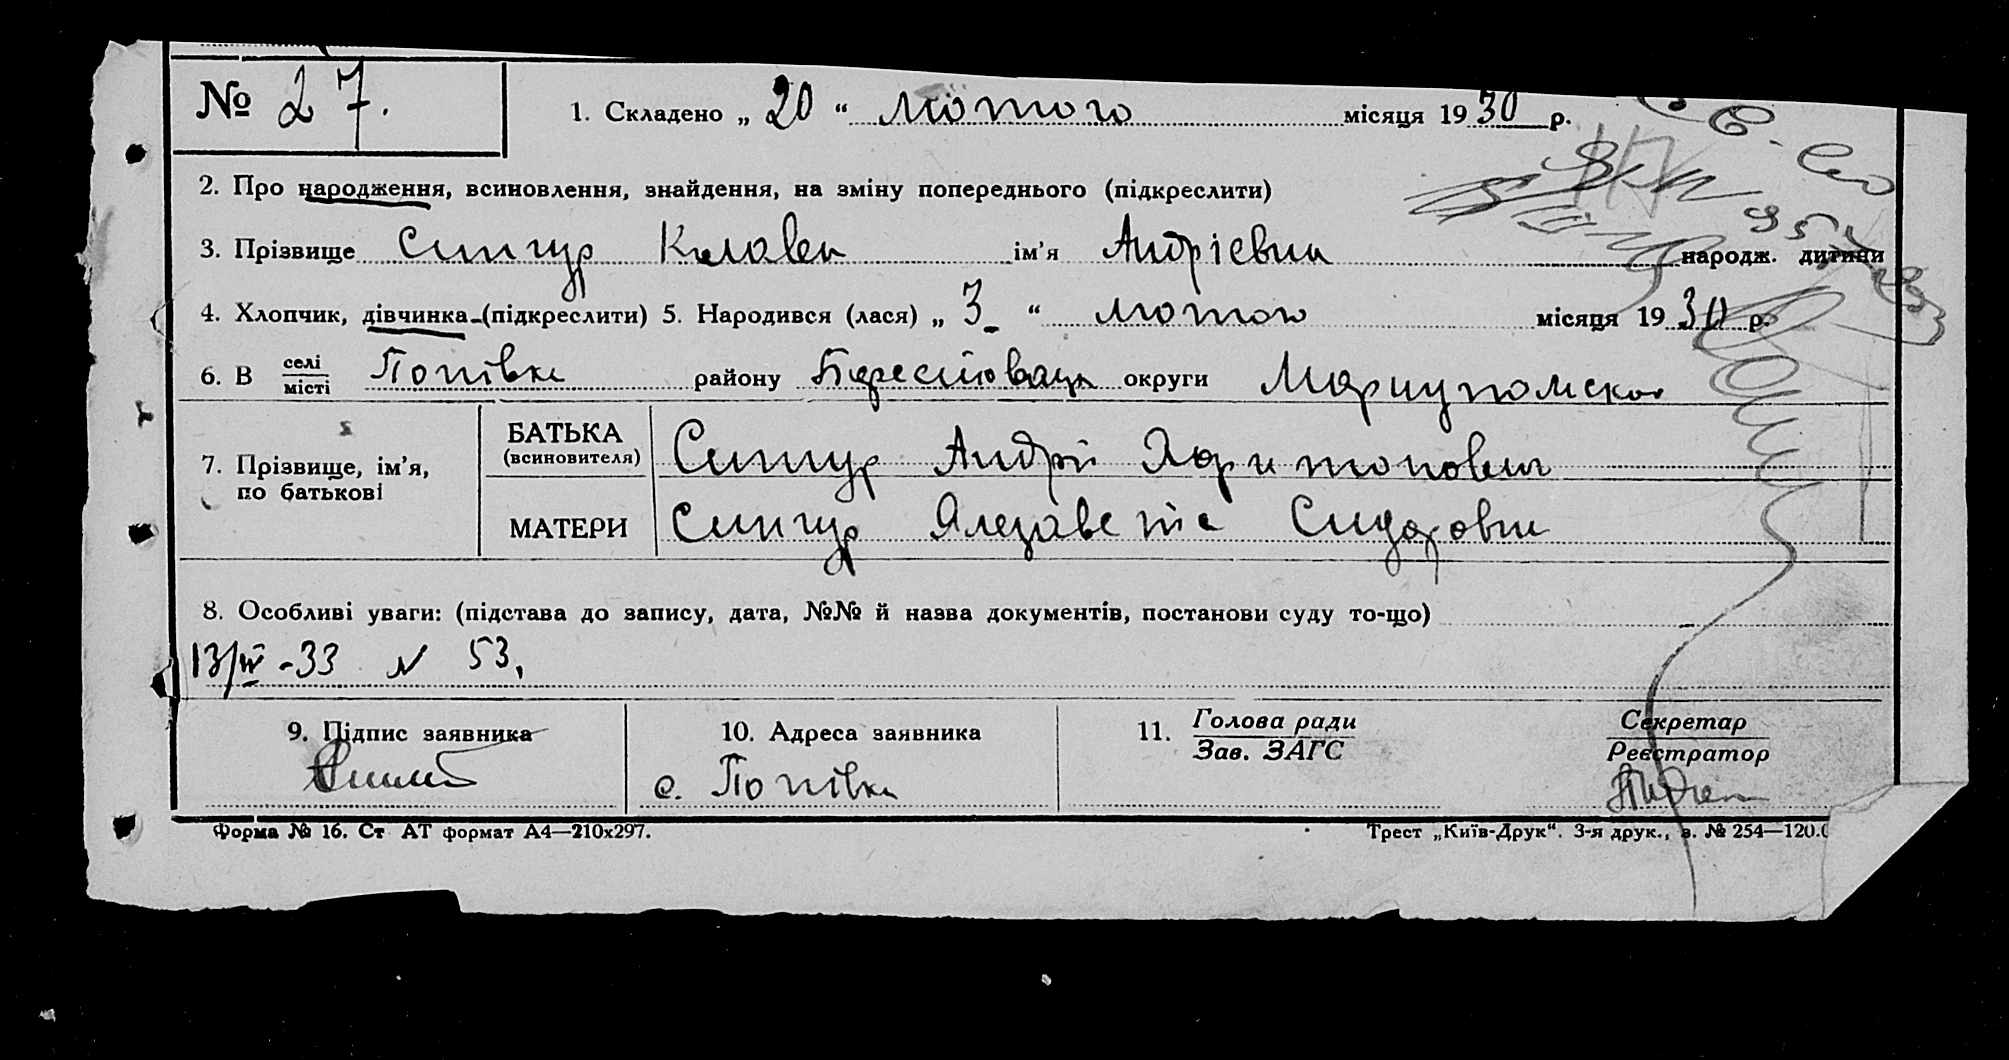 № 27. 1. Складено „ 20 “ лютого місяця 1930 р.
2. Про народження, всиновлення, знайдення, на зміну попереднього (підкреслити)
3. Прізвище Сингур Клавен ім’я Андрієвна народж. дитини
4. Хлопчик, дівчинка (підкреслити) 5. Народився (лася) „ 3 “ лютого місяця 1930 р.
6. В селі/місті Попівка району округи Маріупольскої
7. Прізвище, ім’я, по батькові
БАТЬКА (всиновителя) Сингур Андрій Харитонович
МАТЕРИ Сингур Сидоровна
8. Особливі уваги: (підстава до запису, дата, №№ й назва документів, постанови суду то-що)
13/IV -33 N 53,
9. Підпис заявника 10. Адреса заявника 11. Голова ради/Зав. ЗАГС Секретар/Реєстратор
с. Попівка
Форма № 16. Ст АТ формат А4—210x297. Трест „Київ-Друк“. 3-я друк., з. № 254—120.0